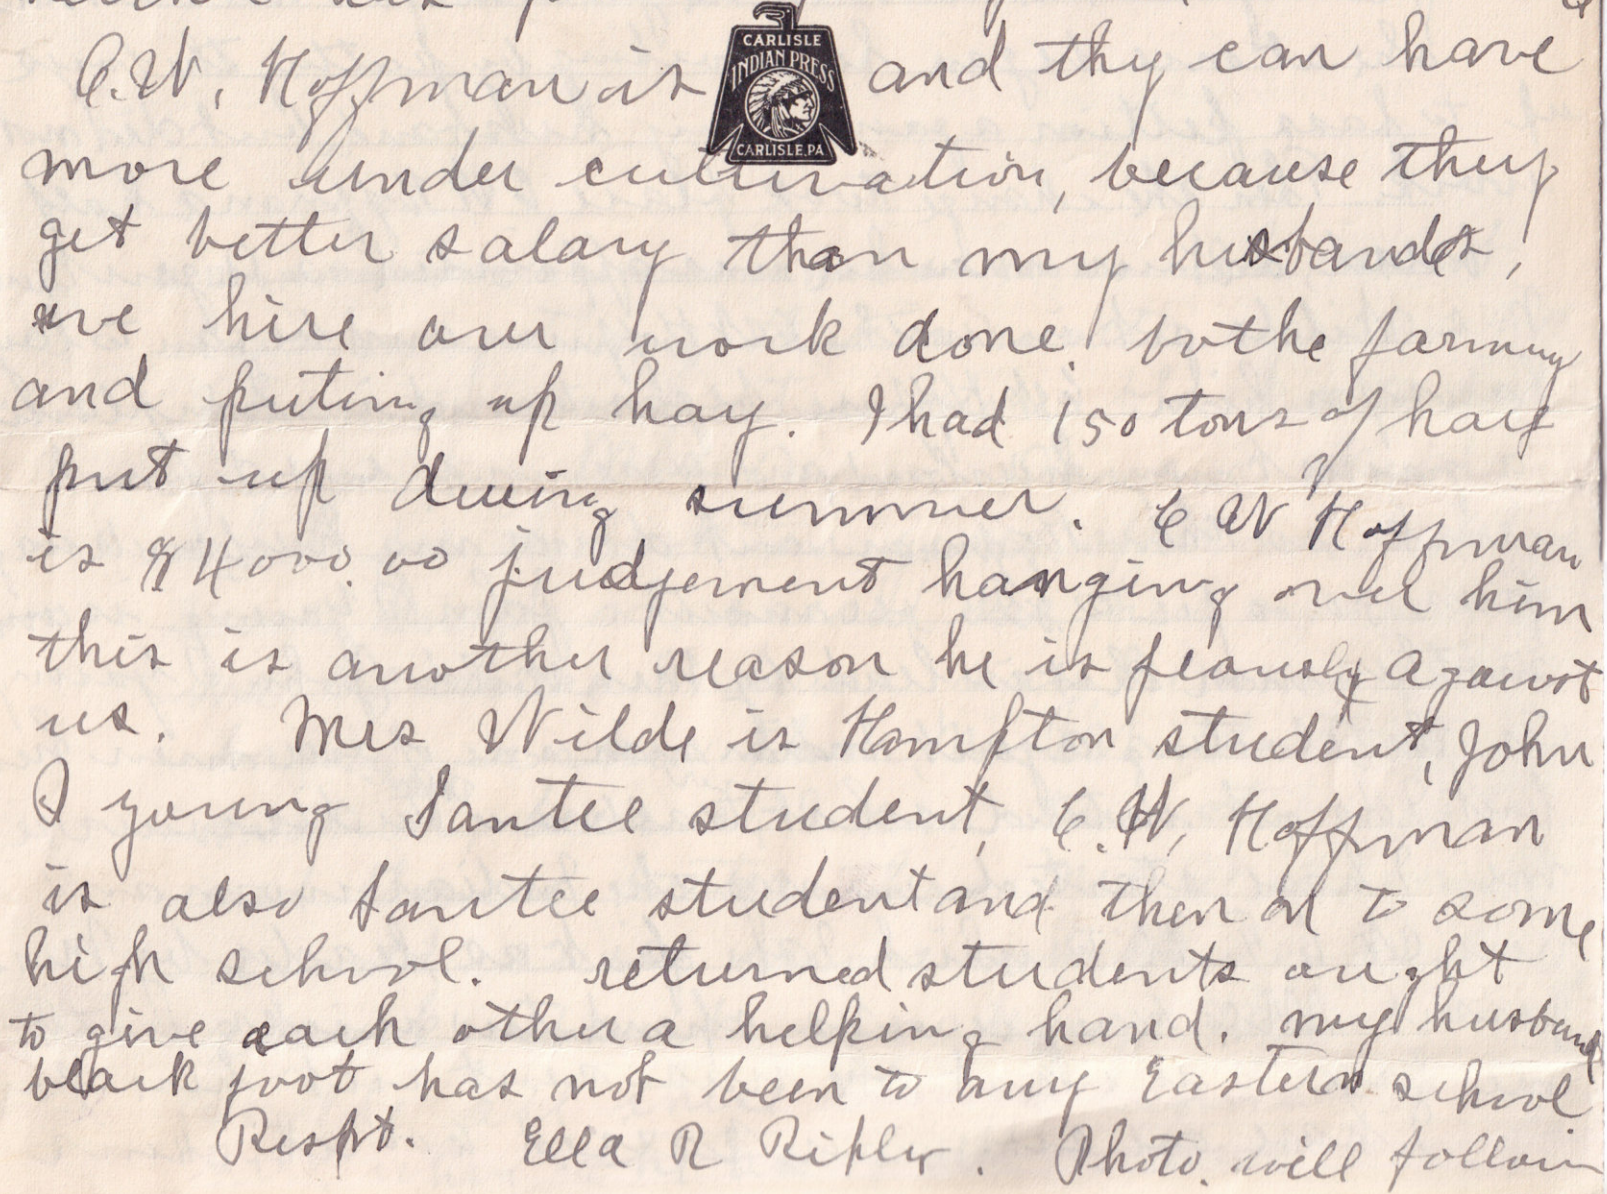 C.W. Hoffman is and thy can have
CARLISLE
INDIAN PRESS
CARLISLE, PA
more under cultivation, because they
get better salary than my husbands,
we hire our work done. bothe farming
and puting up hay. I had 150 tons of hay
put up during summer. C W Hoffman
is $4000.00 judgement hanging over him
this is another reason he is feausly against
us. Mrs Wilde is Hampton student, John
P young Santee student, C.W. Hoffman
is also Santee student and then on to some
high school. returned students ought
to give each other a helping hand. my husband
black foot has not been to any Eastern school.
Respt. Ella R Ripley. Photo. will follow